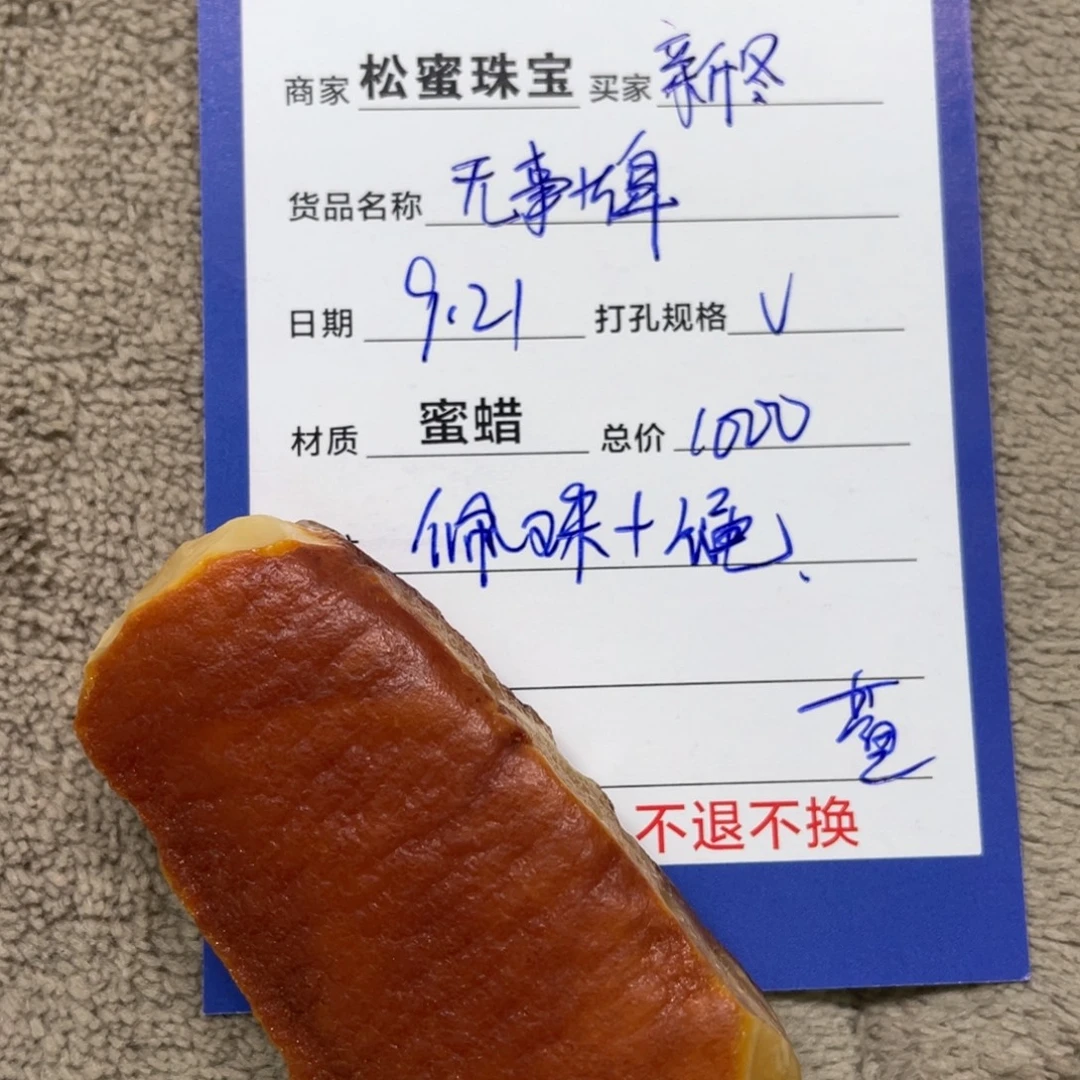 商家 松蜜珠宝 买家 新冬
货品名称 无事牌
日期 9.21 打孔规格 V
材质 蜜蜡 总价 1000
佩珠+绳
不退不换